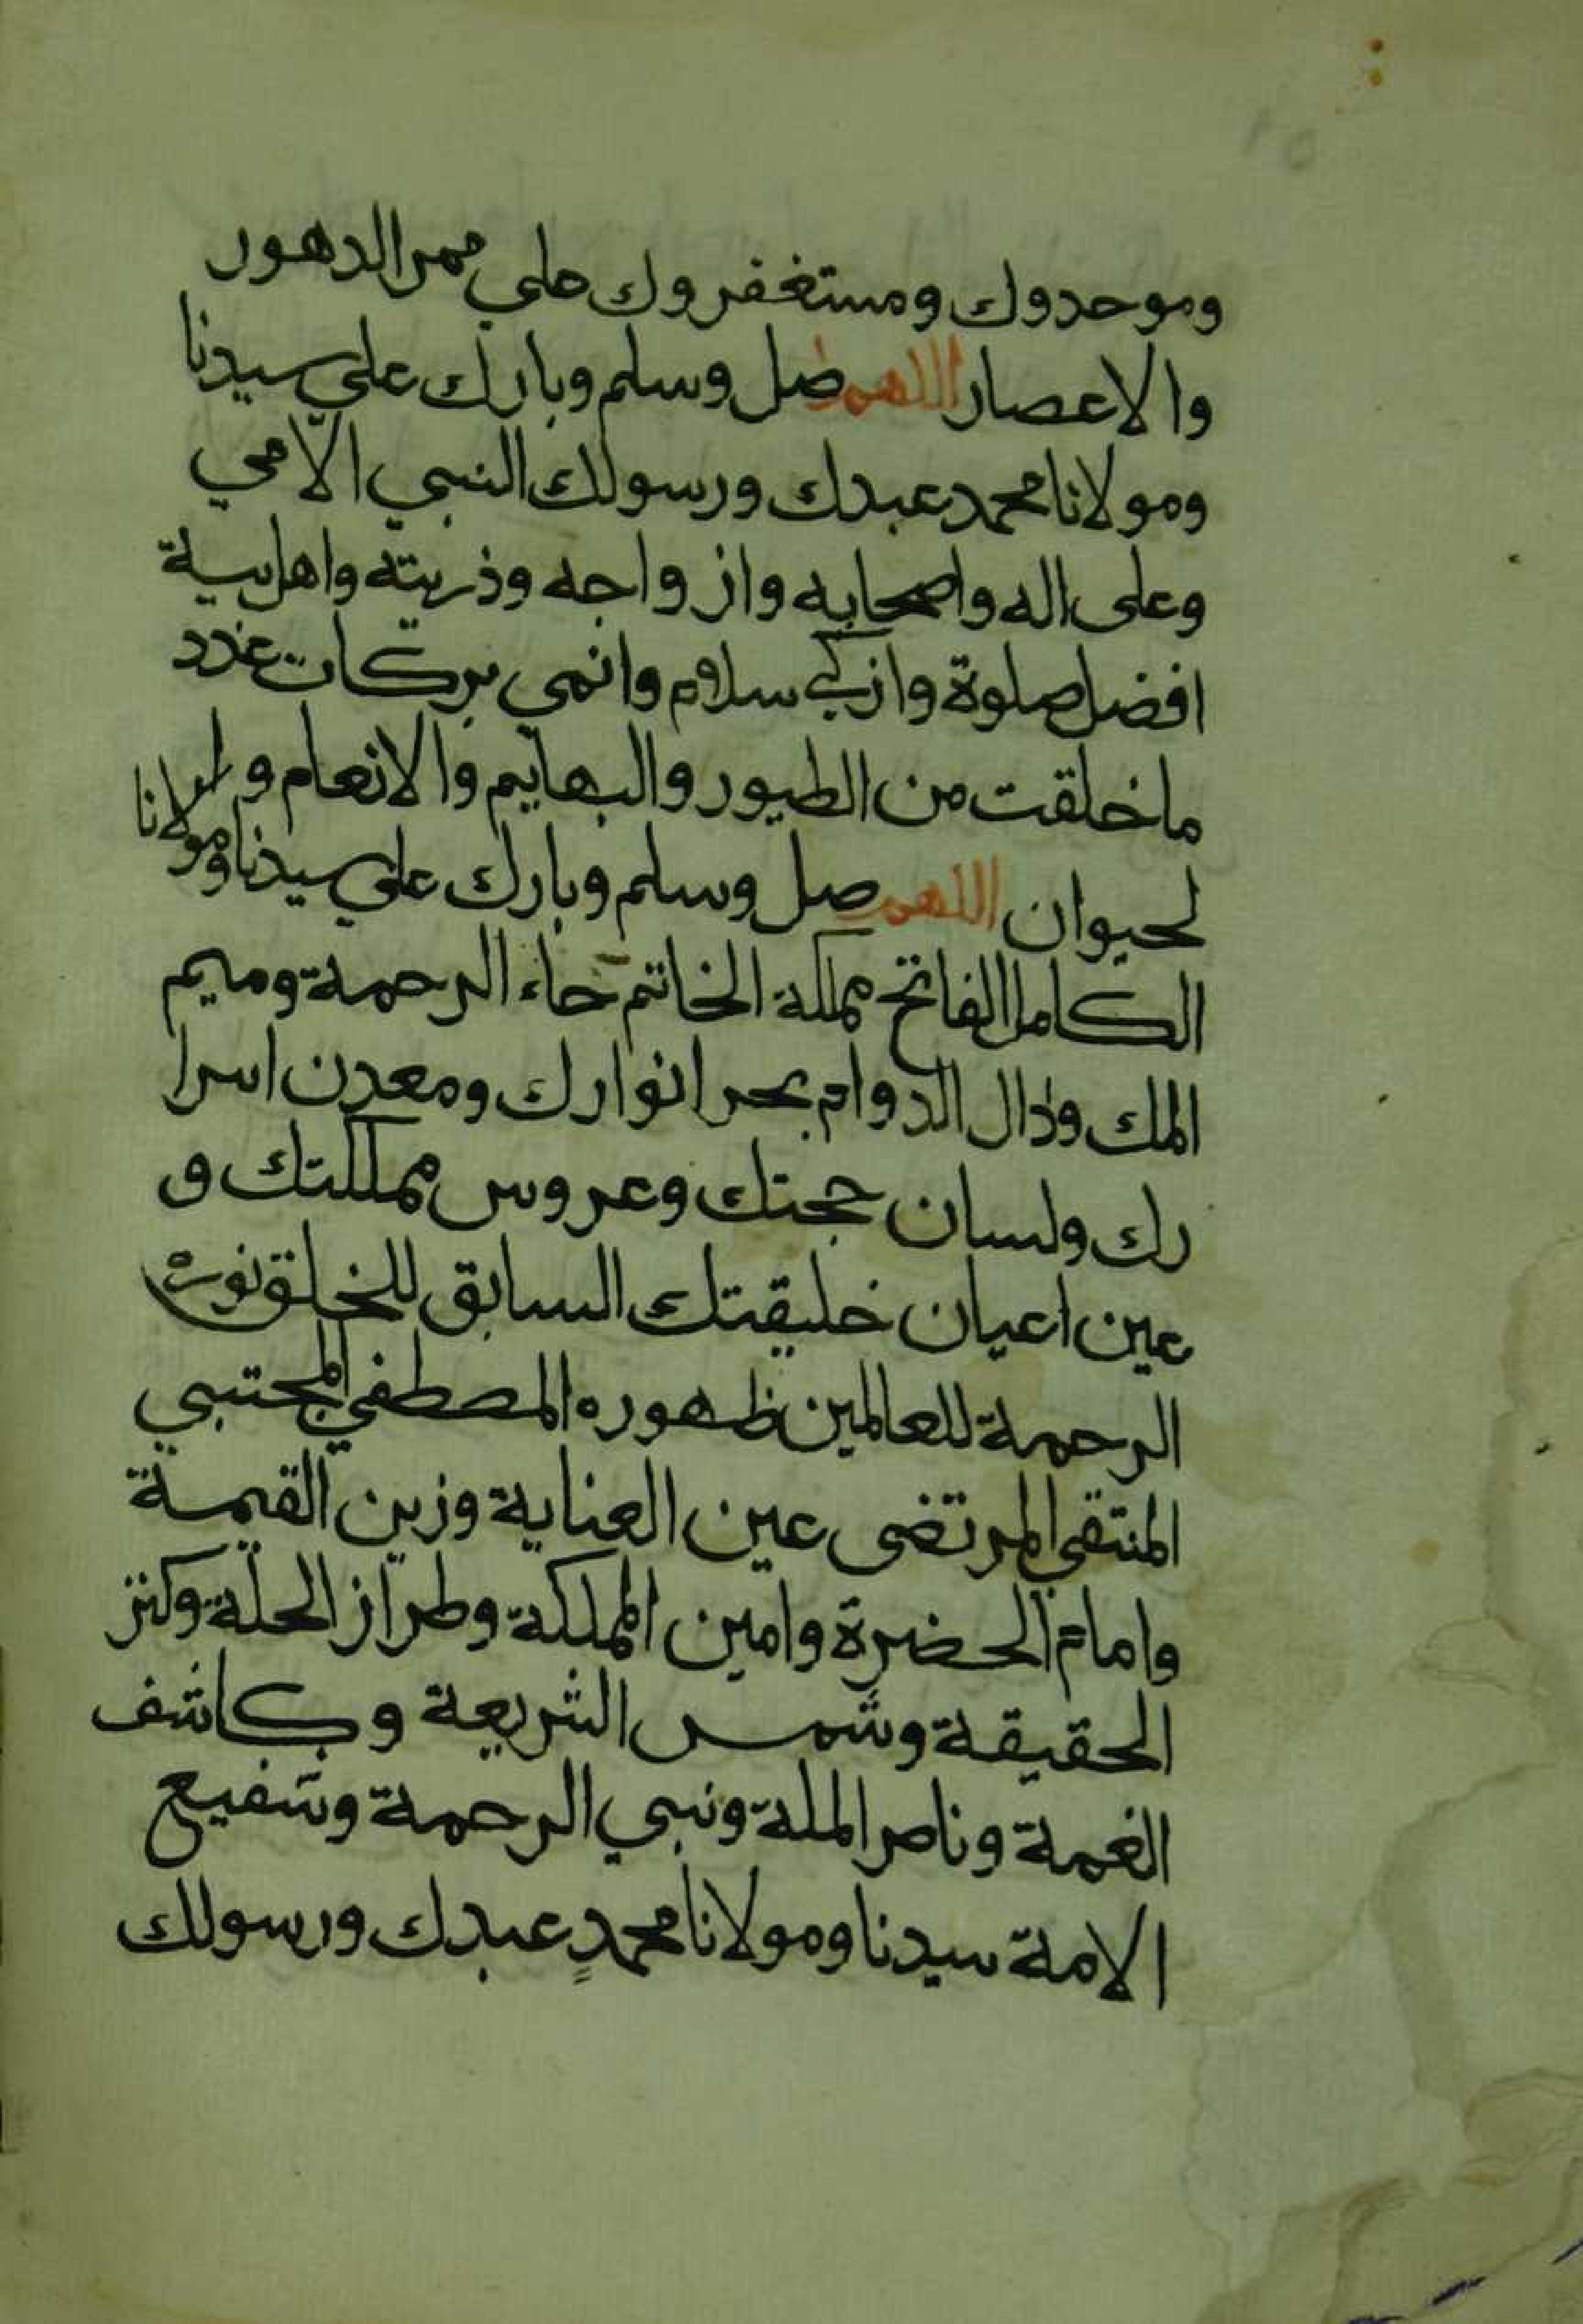 وموحدوك ومستغفروك على ممر الدهور
والاعصار اللهم صل وسلم وبارك علي سيدنا
ومولانا محمد عبدك ورسولك النبي الامي
وعلى اله واصحابه وازواجه وذريته واهل بيته
افضل صلوة وازكي سلام وانمي بركات عدد
ما خلقت من الطيور والبهايم والانعام و ا
لحيوان اللهم صل وسلم وبارك علي سيدنا ومولانا
الكامل الفاتح مملكة الخاتم حاء الرحمة وميم
الملك ودال الدوام بحر انوارك ومعدن اسرا
رك ولسان حجتك وعروس مملكتك و
عين اعيان خليقتك السابق للخلق نوره
الرحمة للعالمين ظهوره المصطفي المجتبي
المنتقي المرتضى عين العناية وزين القيمة
وامام الحضرة وامين المملكة وطراز الحلة وكنز
الحقيقة وشمس الشريعة وكاشف
الغمة وناصر الملة ونبي الرحمة وشفيع
الامة سيدنا ومولانا محمدٍ عبدك ورسولك